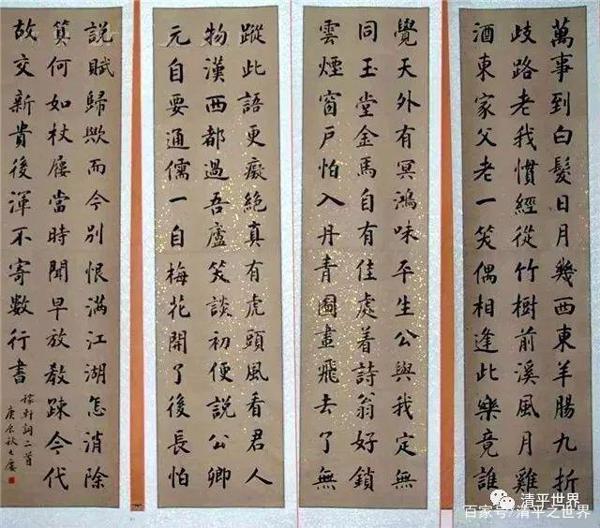 萬事到白髮日月幾西東羊腸九折
歧路老我慣經從竹樹前溪風月雞
酒東家父老一笑偶相逢此樂竟誰
覺天外有冥鴻味平生公與我定無
同玉堂金馬自有佳處着詩翁好鎖
雲煙窗戶怕入丹青圖畫飛去了無
蹤此語更癡絕真有虎頭風看君人
物漢西都過吾廬笑談初便說公卿
元自要通儒一自梅花開了後長怕
說賦歸歟而今別恨滿江湖怎消除
算何如杖屨當時聞早放教踈今代
故交新貴後渾不寄數行書
稼軒詞二首
庚辰秋
清平世界
百家号/清平之世界